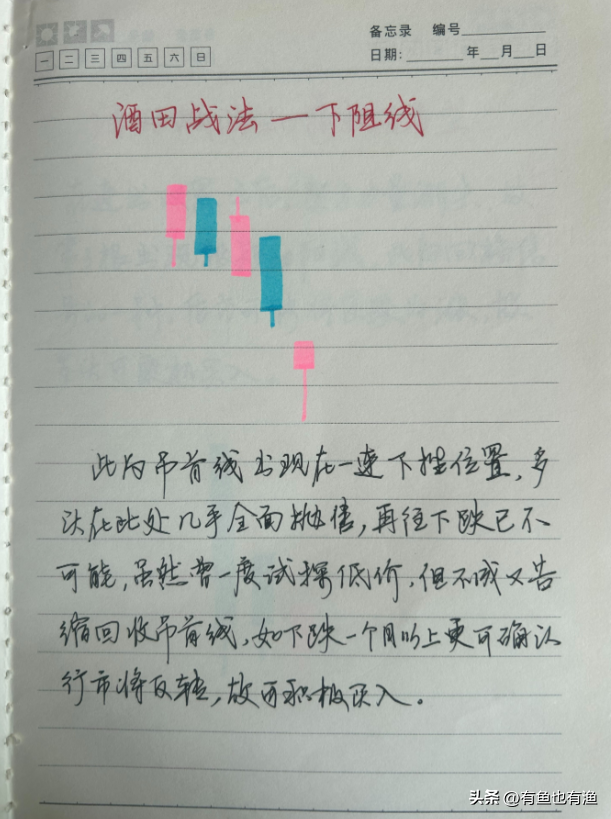 备忘录 编号
一 二 三 四 五 六 日
日期: 年 月 日
酒田战法—下阻线
此为吊首线出现在一连下挫位置,多
头在此处几乎全面抛售,再往下跌已不
可能,虽然曾一度试探低价,但不成又告
缩回收吊首线,如下跌一个月以上更可确认
行市将反转,故可积极买入。
头条 @有鱼也有渔